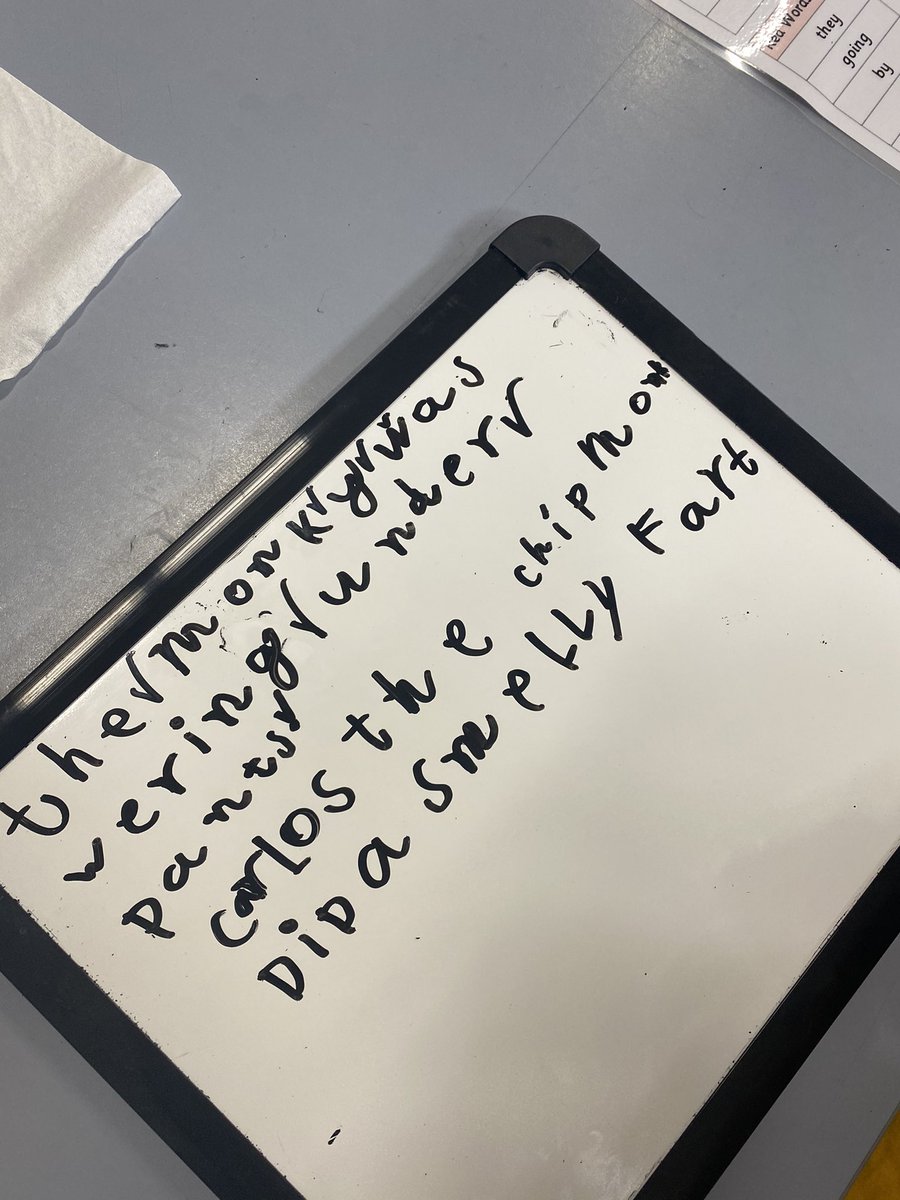 Red Words
they
going
by
the monky was
wering under
pants
carlos the chip mon
DiD a smelly Fart